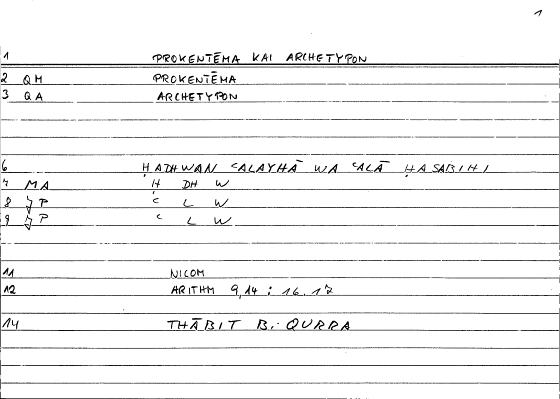 1
1 PROKENTĒMA KAI ARCHETYPON
2 QM PROKENTĒMA
3 QA ARCHETYPON
6 ḤADHWAN ʿALAYHĀ WA ʿALĀ ḤASABIHI
7 MA Ḥ DH W
8 P ʿ L W
9 P ʿ L W
11 NICOM
12 ARITHM 9,14 : 16.17
14 THĀBIT B. QURRA